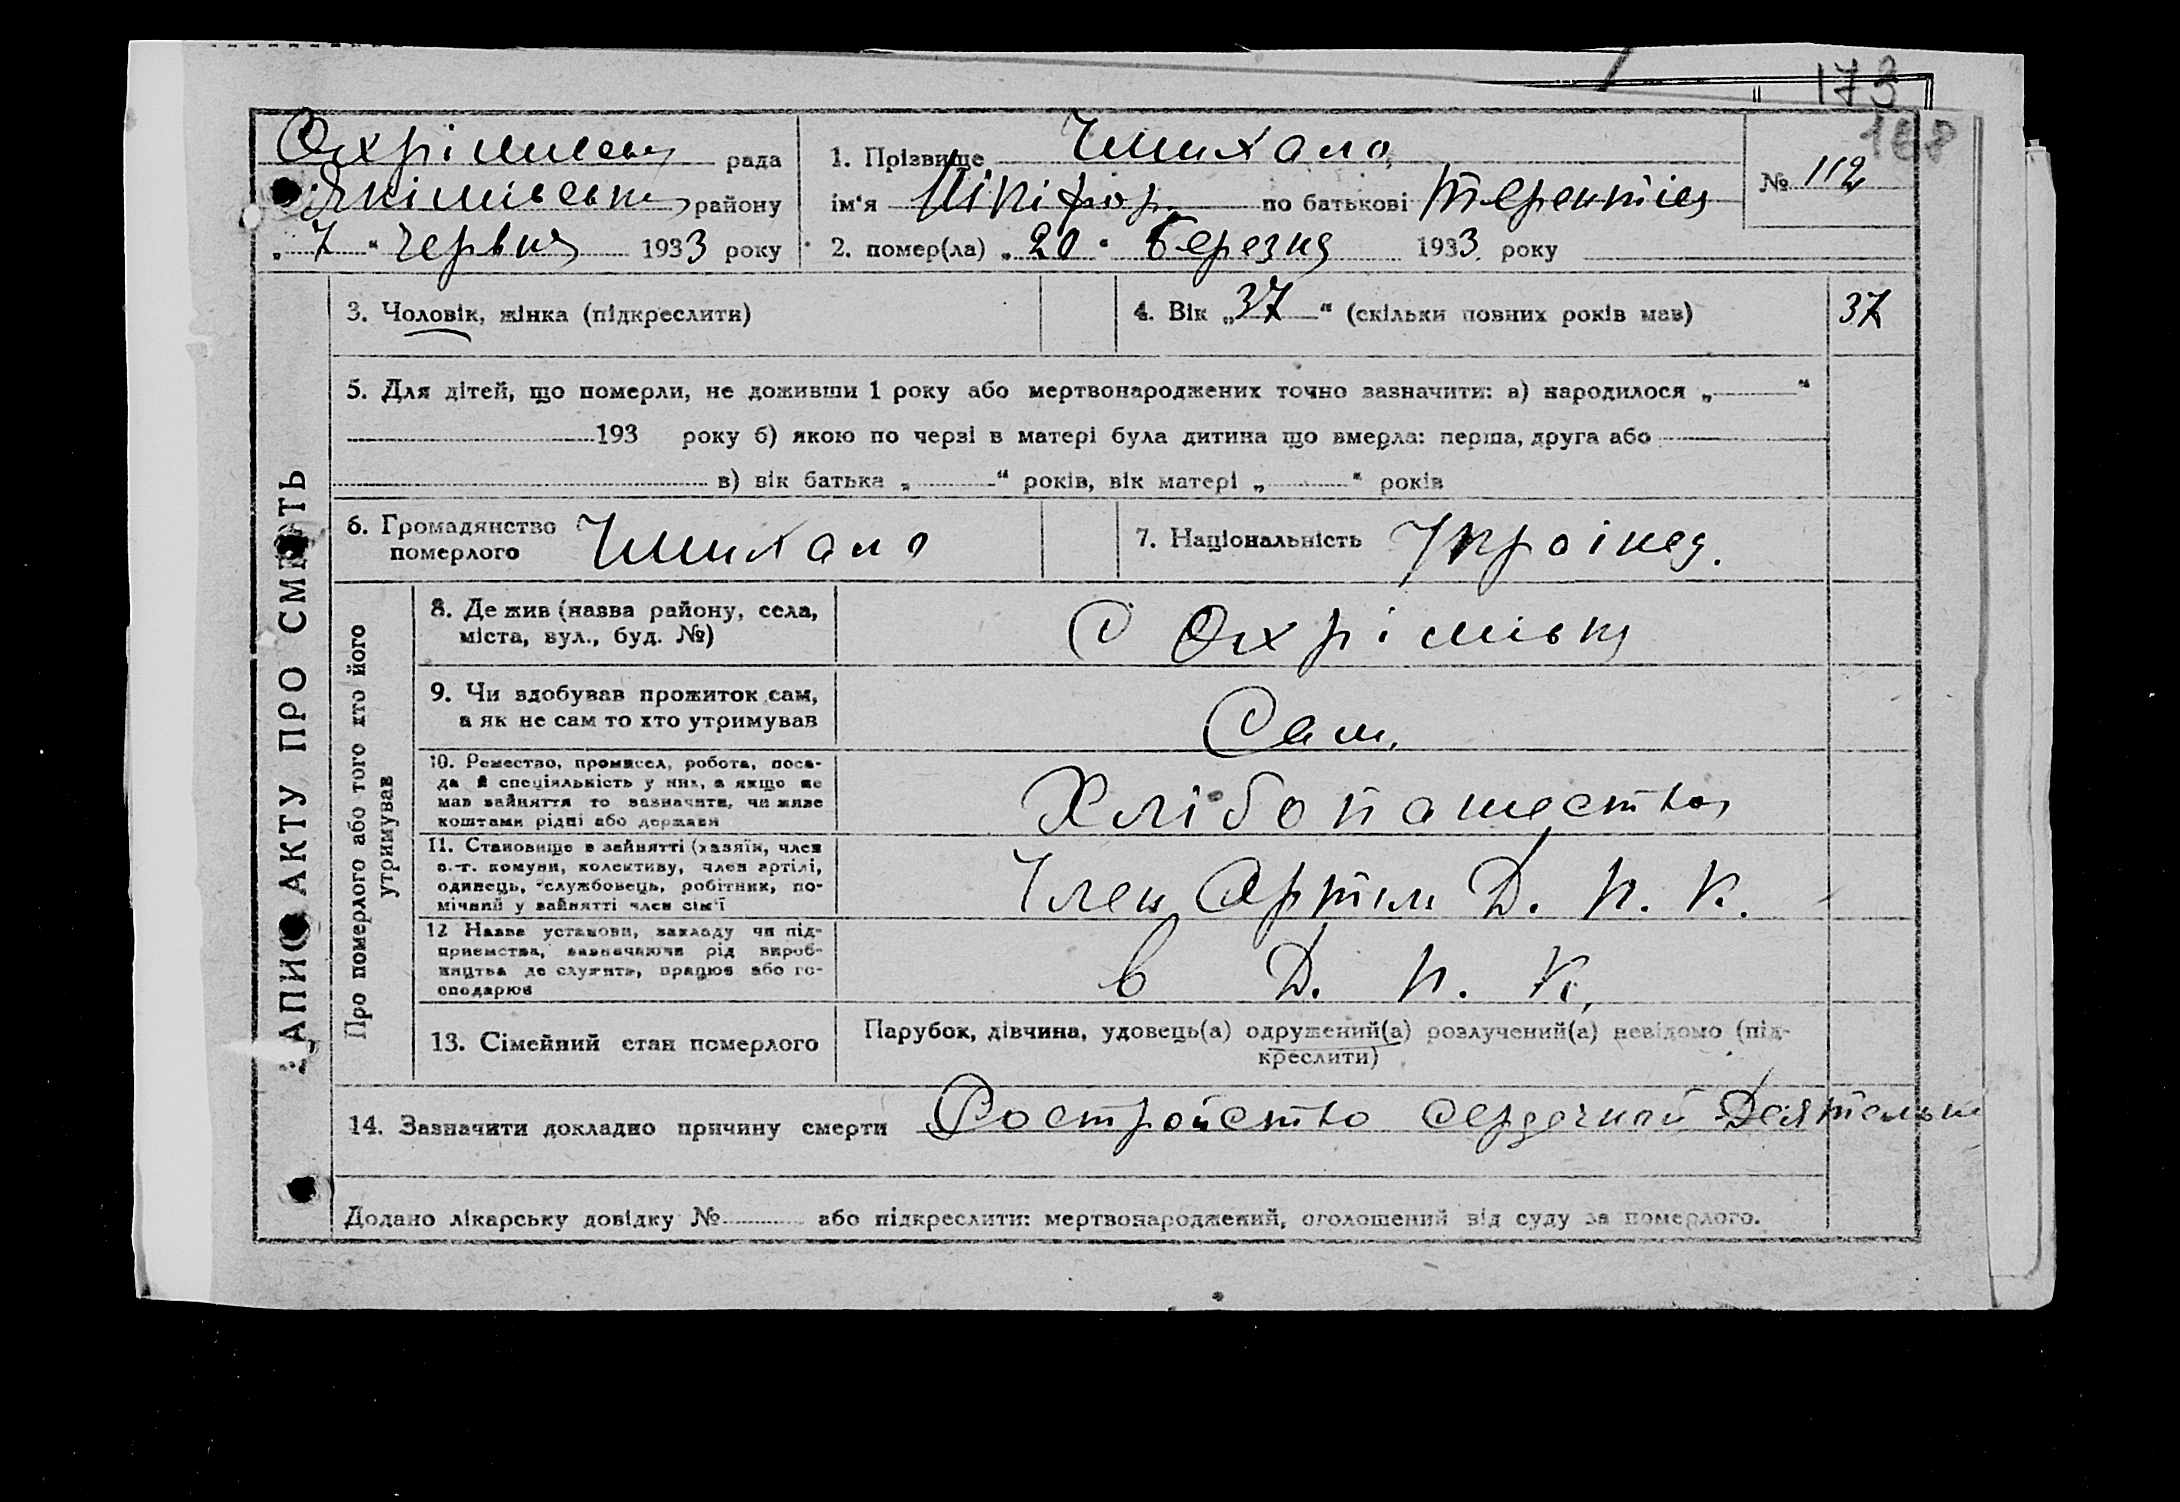 173
168
Охрімівськ рада
Якімівськ району
„ 7 “ Червня 1933 року
1. Прізвище Чмихало
ім'я Нікіфор по батькові Терентієв
№ 112
2. помер(ла) „ 20 “ Березня 1933 року
ЗАПИС АКТУ ПРО СМЕРТЬ
3. Чоловік, жінка (підкреслити)
4. Вік „ 37 “ (скільки повних років мав)
37
5. Для дітей, що померли, не доживши 1 року або мертвонароджених точно зазначити: а) народилося „ “
193 року б) якою по черзі в матері була дитина що вмерла: перша, друга або
в) вік батька „ “ років, вік матері „ “ років
6. Громадянство
померлого
Чмихало
7. Національність Украінец.
Про померлого або того хто його
утримував
8. Де жив (назва району, села,
міста, вул., буд. №)
С Охрімівка
9. Чи здобував прожиток сам,
а як не сам то хто утримував
Сам,
10. Ремество, промисел, робота, поса-
да й спеціяльність у них, а якщо не
мав зайняття то зазначити, чи живе
коштами рідні або держави
Хлібопашество
11. Становище в зайнятті (хазяїн, член
с.-г. комуни, колективу, член артілі,
одинець, службовець, робітник, по-
мічний у зайнятті член сім'ї
Член Артили Д. Н. К.
12 Назва установи, закладу чи під-
приємства, зазначаючи рід вироб-
ництва де служить, працює або го-
сподарює
в Д. Н. К,
13. Сімейний стан померлого
Парубок, дівчина, удовець(а) одружений(а) розлучений(а) невідомо (під-
креслити)
14. Зазначити докладно причину смерти Ростройство сердечной Деятельн
Додано лікарську довідку № або підкреслити: мертвонароджений, оголошений від суду за померлого.